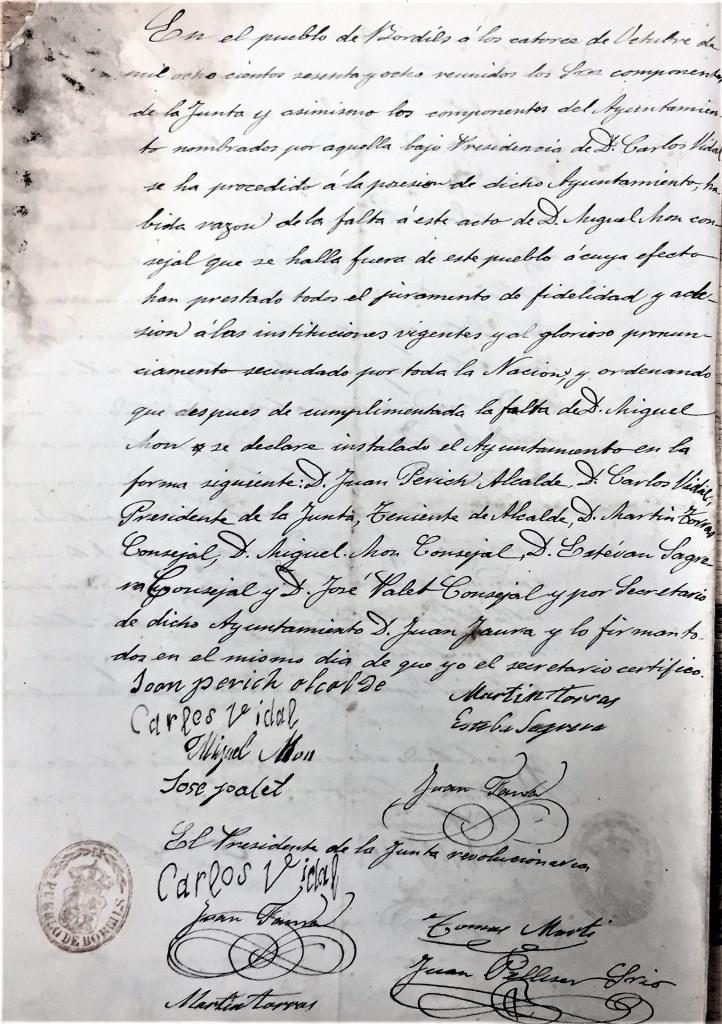 En el pueblo de Bordils á los catorce de Octubre de
mil ocho cientos sesenta y ocho reunidos los Sres componentes
de la Junta y asimismo los componentes del Ayuntamien-
to nombrados por aquella bajo Presidencia de D. Carlos Vidal
se ha procedido á la posesion de dicho Ayuntamiento, ha
bida razon de la falta á este acto de D. Miguel Mon con-
sejal que se halla fuera de este pueblo á cuya efecto
han prestado todos el juramento de fidelidad y ade-
sion á las instituciones vigentes y al glorioso pronun-
ciamento secundado por toda la Nacion, y ordenando
que despues de cumplimentada la falta de D. Miguel
Mon se declare instalado el Ayuntamiento en la
forma seguiente: D. Juan Perich Alcalde, D. Carlos Vidal,
Presidente de la Junta, Teniente de Alcalde, D. Martin Torras
Consejal, D. Miguel Mon Consejal, D. Estévan Sagre
ra Consejal y D. José Valet Consejal y por Secretario
de dicho Ayuntamiento D. Juan Faura y lo firman to-
dos en el mismo dia de que yo el secretario certifico.
Joan perich alcalde
Martin torras
Carlos Vidal
Esteba Sagrera
Miguel Mon
Jose palet
Juan Faura
El Presidente de la Junta revolucionaria
Carlos Vidal
Juan Faura
Tomas Marti
Juan Pelliser
Martin torras
PUEBLO DE BORDILS